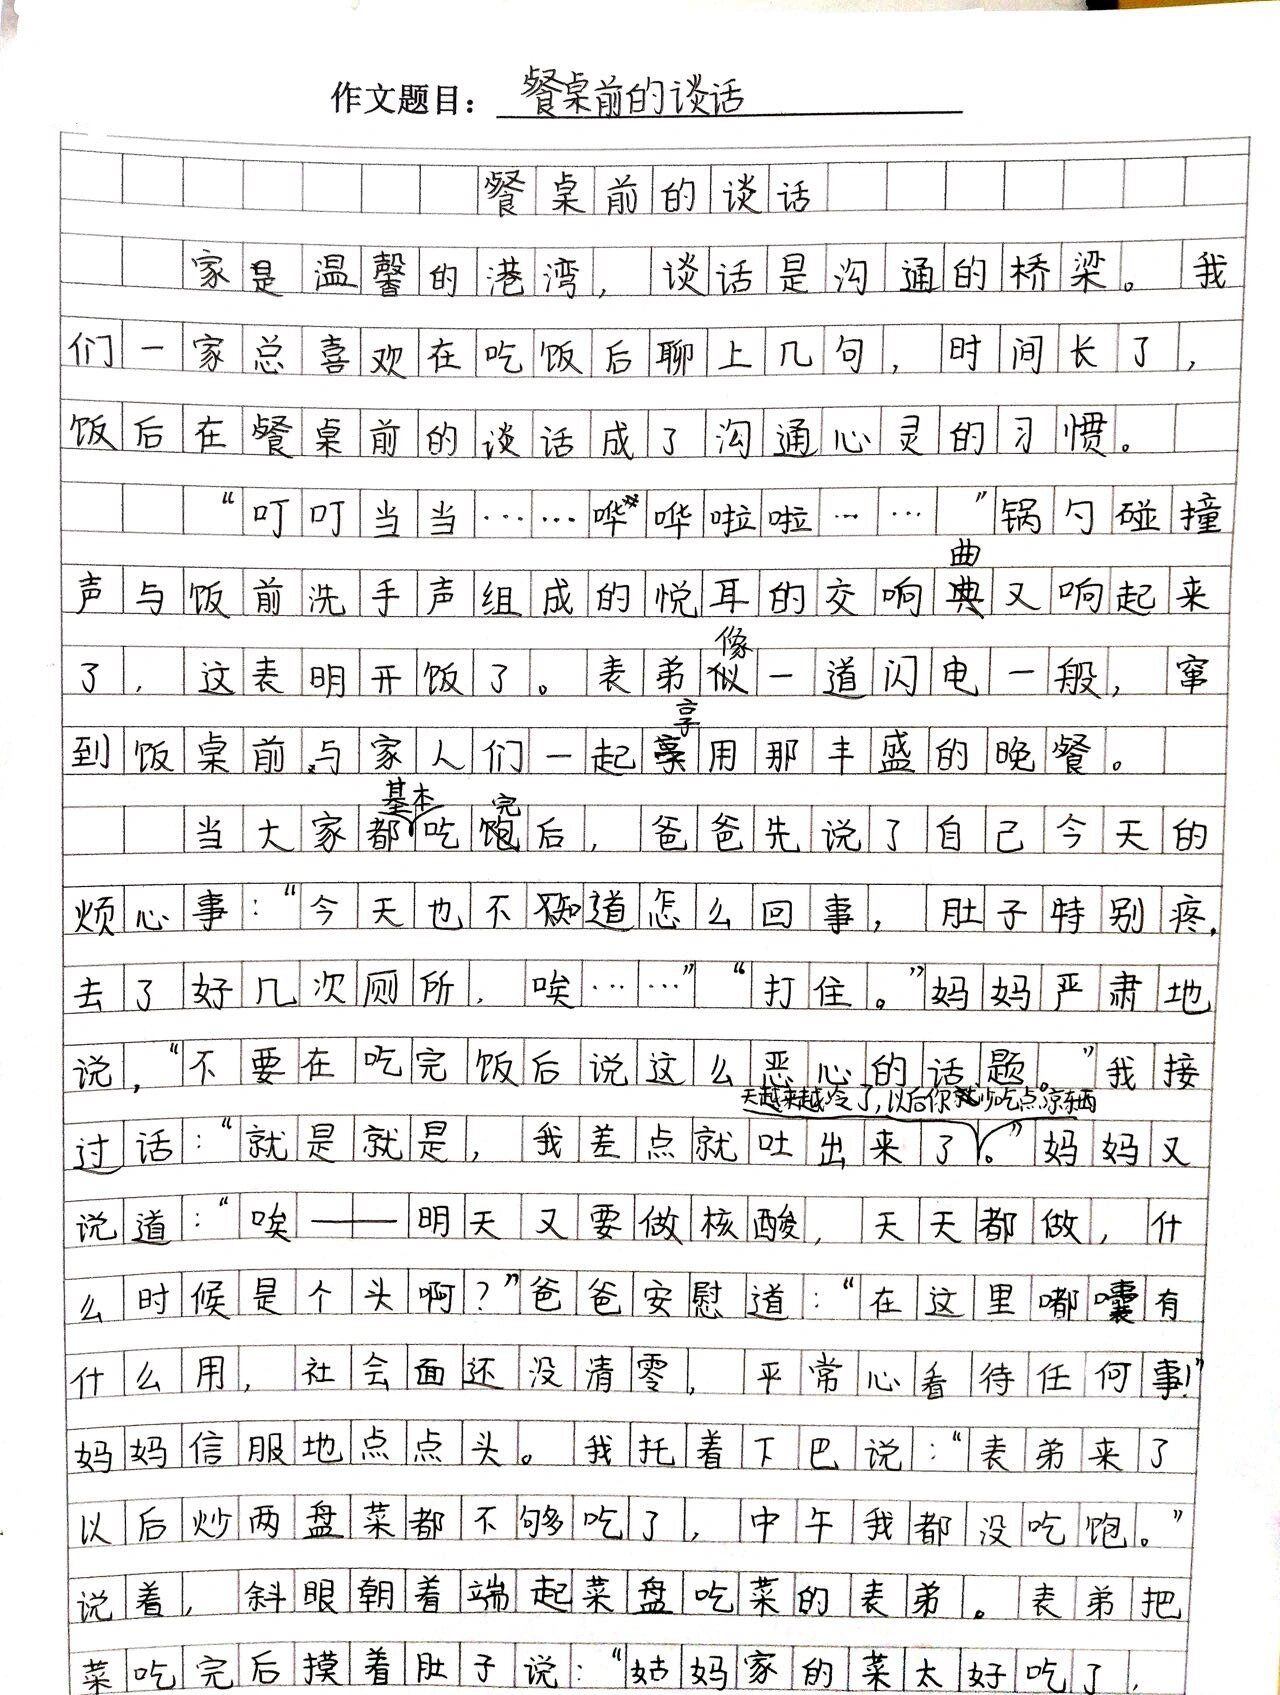 作文题目：餐桌前的谈话
餐桌前的谈话
家是温馨的港湾，谈话是沟通的桥梁。我
们一家总喜欢在吃饭后聊上几句，时间长了，
饭后在餐桌前的谈话成了沟通心灵的习惯。
“叮叮当当……哗哗啦啦……”锅勺碰撞
声与饭前洗手声组成的悦耳的交响曲又响起来
了，这表明开饭了。表弟像一道闪电一般，窜
到饭桌前与家人们一起享用那丰盛的晚餐。
当大家都基本吃完后，爸爸先说了自己今天的
烦心事：“今天也不知道怎么回事，肚子特别疼，
去了好几次厕所，唉……”“打住。”妈妈严肃地
说，“不要在吃完饭后说这么恶心的话题。”我接
过话：“就是就是，我差点就吐出来了天越来越冷了，以后你就少吃点凉东西。”妈妈又
说道：“唉——明天又要做核酸，天天都做，什
么时候是个头啊？”爸爸安慰道：“在这里嘟囔有
什么用，社会面还没清零，平常心看待任何事！”
妈妈信服地点点头。我托着下巴说：“表弟来了
以后炒两盘菜都不够吃了，中午我都没吃饱。”
说着，斜眼朝着端起菜盘吃菜的表弟。表弟把
菜吃完后摸着肚子说：“姑妈家的菜太好吃了，